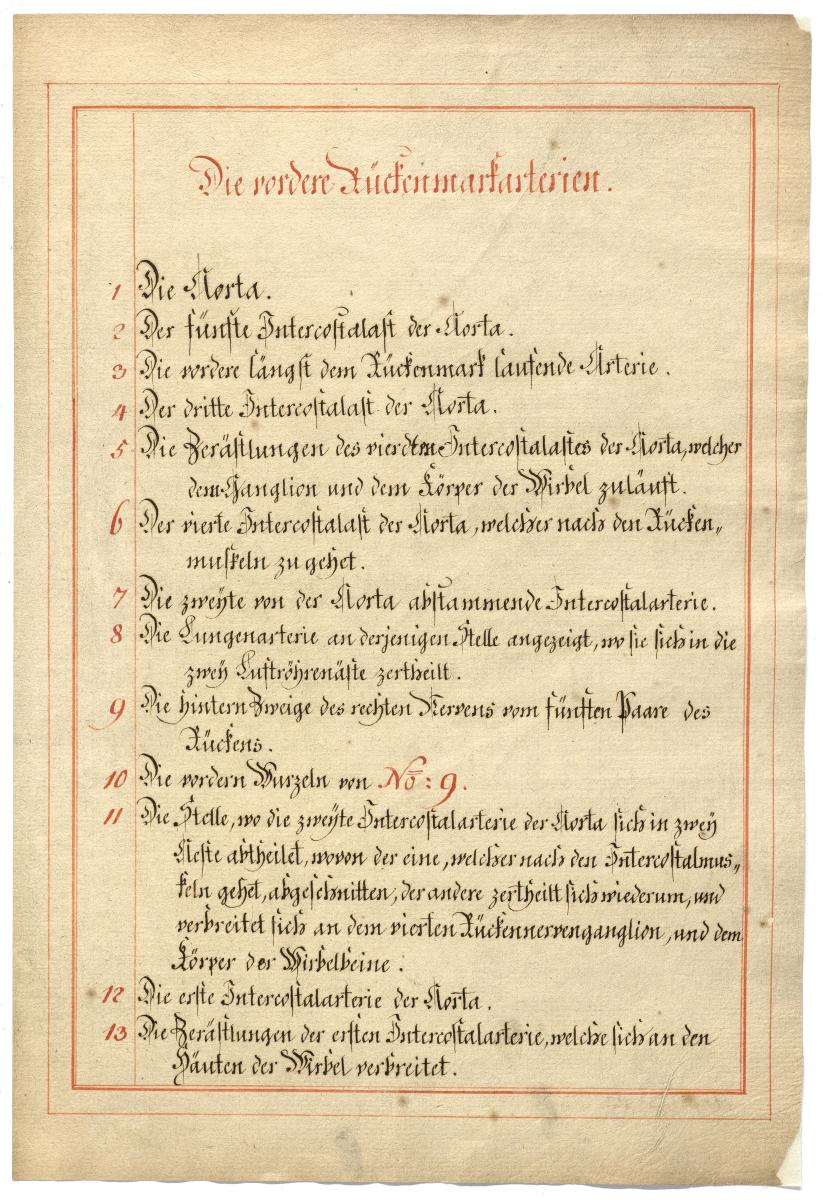 Die vordere Rückenmarkarterien.
1 Die Aorta.
2 Der fünfte Intercostalast der Aorta.
3 Die vordere längst dem Rückenmark laufende Arterie.
4 Der dritte Intercostalast der Aorta.
5 Die Zerästlungen des vierdten Intercostalastes der Aorta, welcher
dem Ganglion und dem Körper der Wirbel zuläuft.
6 Der vierte Intercostalast der Aorta, welcher nach den Rücken„
muskeln zu gehet.
7 Die zweyte von der Aorta abstammende Intercostalarterie.
8 Die Lungenarterie an derjenigen Stelle angezeigt, wo sie sich in die
zwey Luftröhrenäste zertheilt.
9 Die hintern Zweige des rechten Nervens vom fünften Paare des
Rückens.
10 Die vordern Wurzeln von No: 9.
11 Die Stelle, wo die zweyte Intercostalarterie der Aorta sich in zwey
Aeste abtheilet, wovon der eine, welcher nach den Intercostalmus„
keln gehet, abgeschnitten, der andere zertheilt sich wiederum, und
verbreitet sich an dem vierten Rückennervenganglion, und dem
Körper der Wirbelbeine.
12 Die erste Intercostalarterie der Aorta.
13 Die Zerästlungen der ersten Intercostalarterie, welche sich an den
Häuten der Wirbel verbreitet.